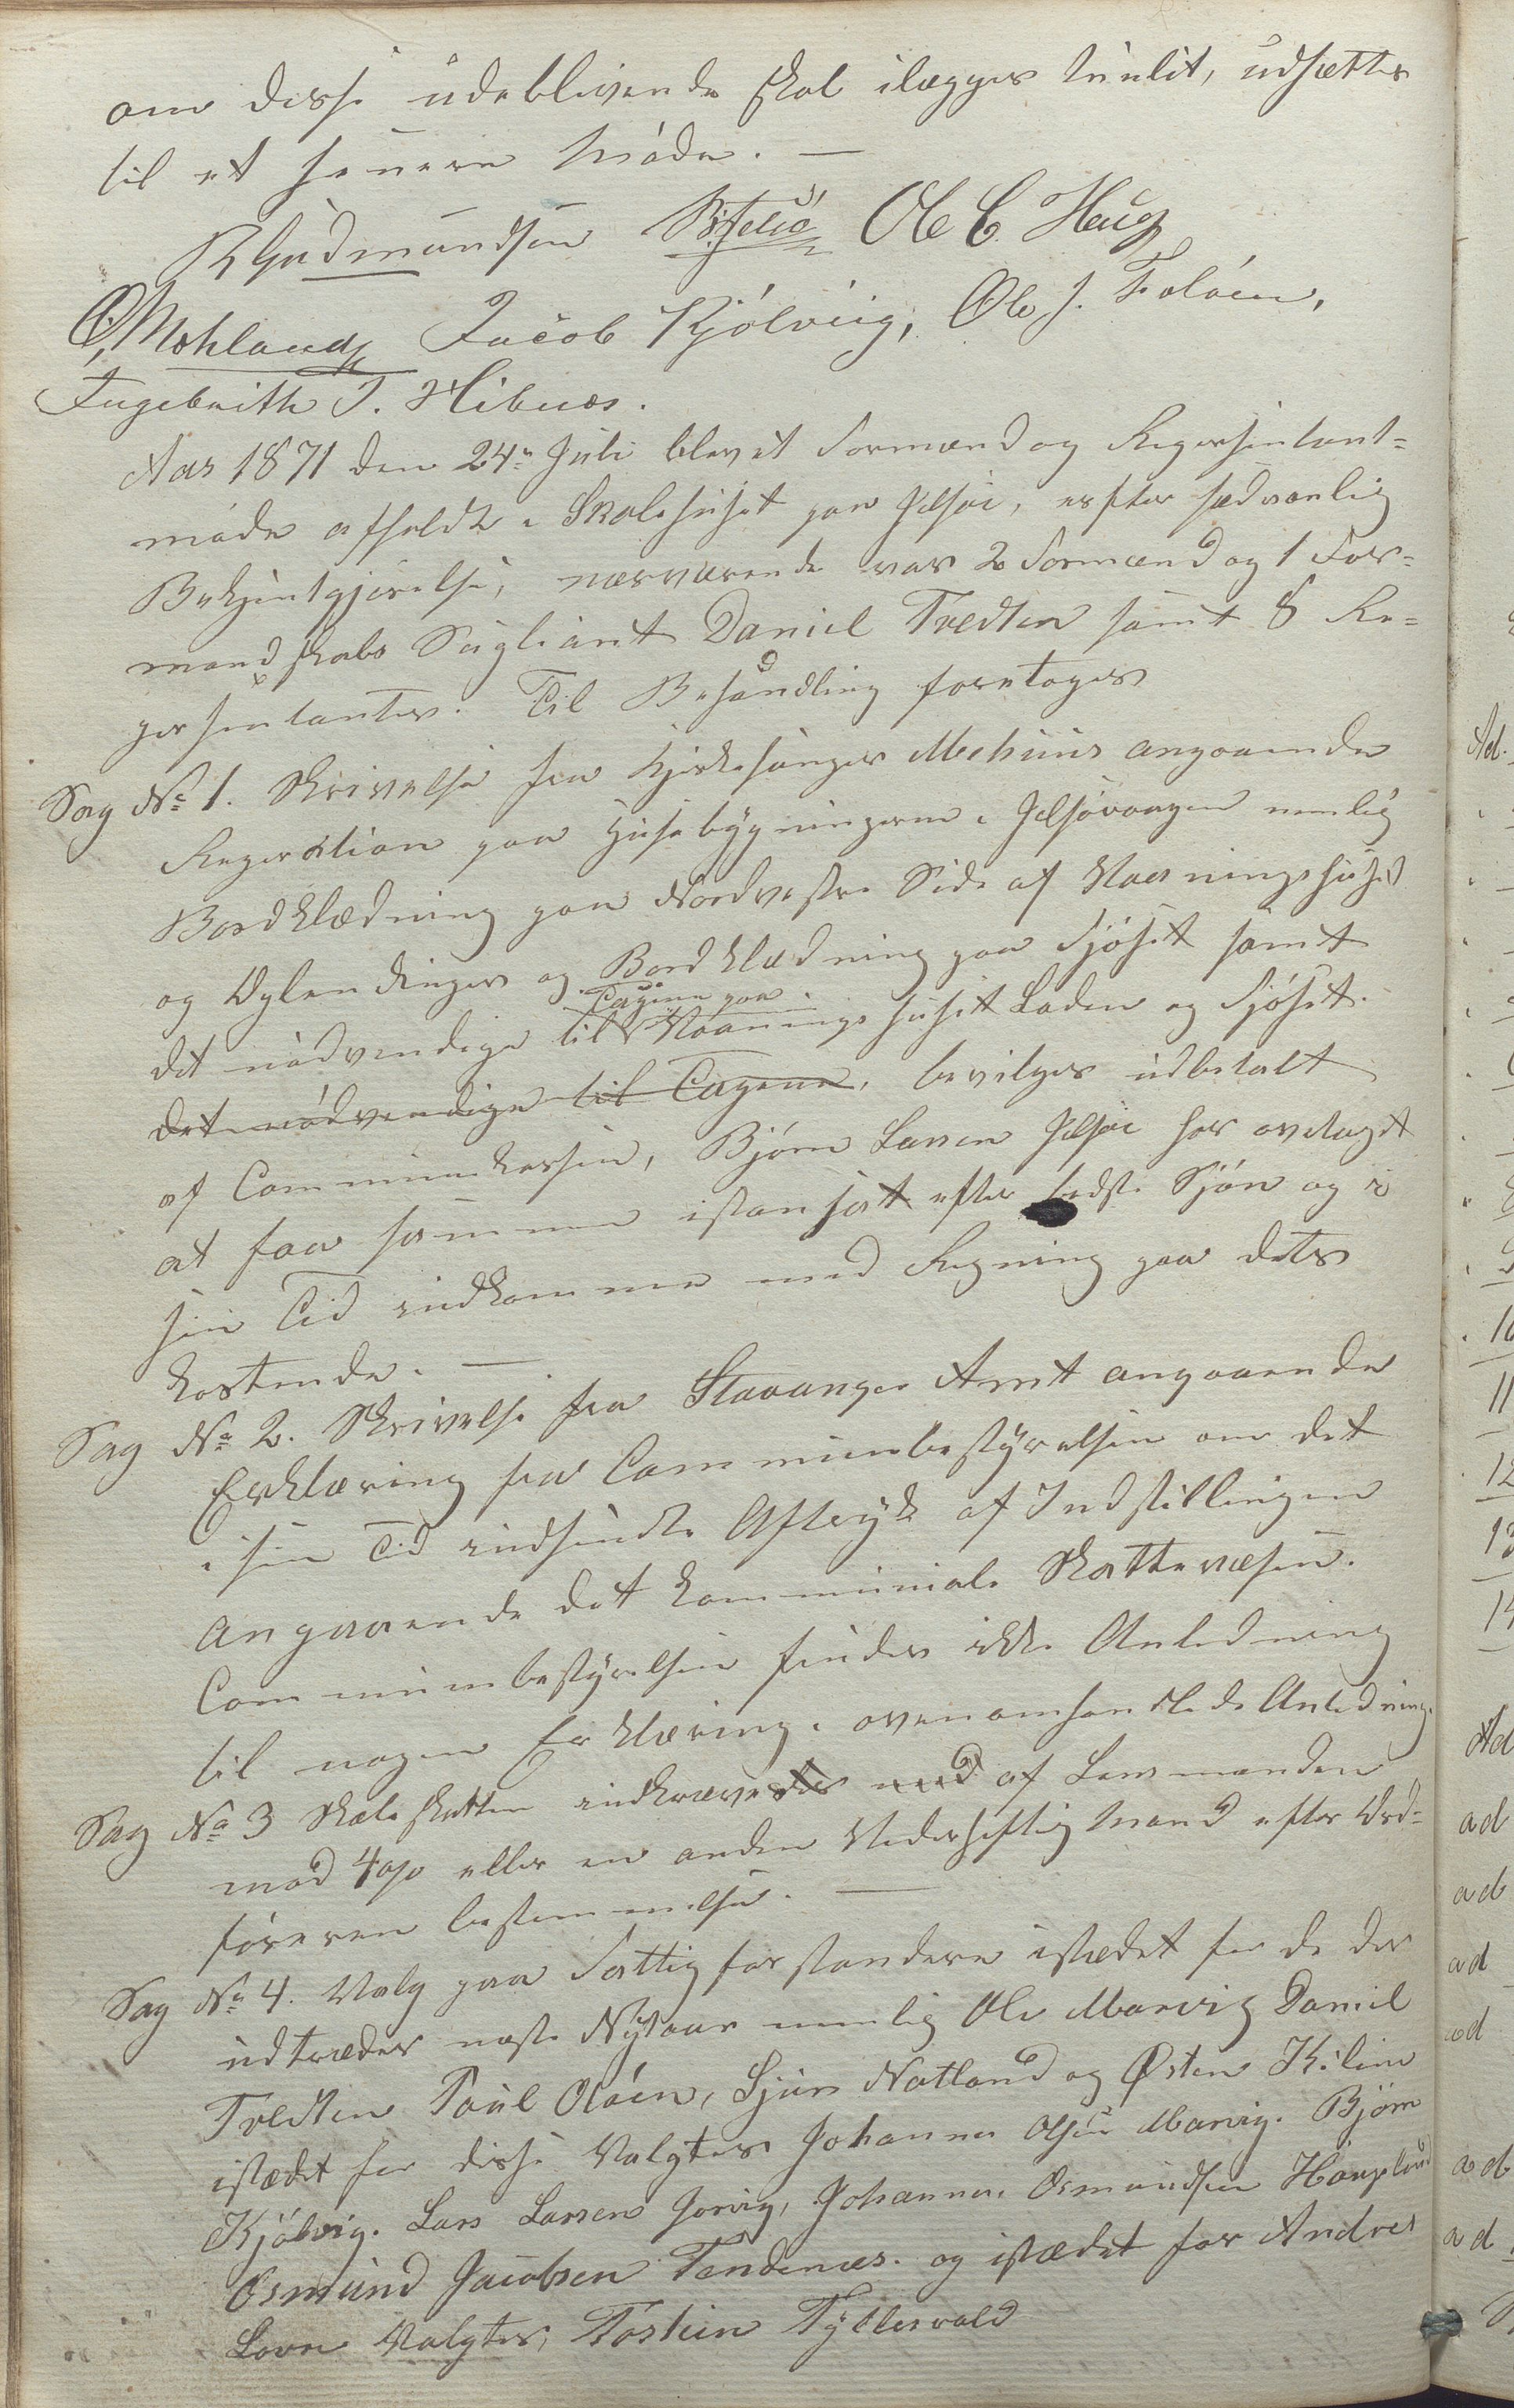 om disse udeblivende skal ilægges Mulct, udsættes
til et senere Møde. —
R Gudmundsen B. Jelsø Ole C. Haug
O, Mehland Jacob Kjølvig, Ole J. Foløen,
Ingebrith T. Hibnes.
Aar 1871 den 24de Juli blev et Formænd og Repræsentant=
møde afholdt i Skolehuset paa Jelsøe, efter sædvanlig
Bekjentgjørelse, nærværende var 2 Formænd og 1 For=
mandskabs Supliant Daniel Tvedten samt 8 Re=
præsentanter. Til Behandling foretoges
Sag No 1. Skrivelse fra Kjerkesanger Mehuus angaaende
Reperation paa Husebygningerne i Jelsøvaagen nemlig
Bordklædning paa Nordvestre Side af Vaaningshuset
og Oplendinger og Bordklædning paa Sjøhuset samt
Tagene paa
det nødvendige til Vaaningshuset Laden og Sjøhuset.
det nødvendige til Tagene, bevilges udbetalt
af Communekassen, Bjørn Larsen Jelsøe har ovetaget
at faa samme istansat efter bedste Skjøn og i
sin Tid indkomme med Regning paa dets
kostende. —
Sag No 2. Skrivelse fra Stavanger Amt angaaende
Erklæring fra Communebestyrelsen om det
i sin Tid indsendte Aftryk af Indstillingen
angaaende det kommunale Skattevæsen.
Communebestyrelsen finder ikke Anledning
til nogen Erklæring i ovenomhandlede Anledning.
Sag No 3 Skoleskatten indkræves med af Lensmanden
mod 4 o/o eller en anden Vederheftig Mand efter Ord=
førerens bestemmelse. —
Sag No 4. Valg paa Fattigforstandere istædet for de der
udtræder næste Nytaar nemlig Ole Marvig Daniel
Tvedten Poul Oløen, Sjur Natland og Østen Kilen
istædet for disse Valgtes Johannes Olsen Marvig. Bjørn
Kjølvig. Lars Larsen Jorvig, Johannes Osmundsen Haugland
Osmund Jacobsen Tendenes. og istædet for Andres
Lovre Valgtes, Tostein Tytlesvold